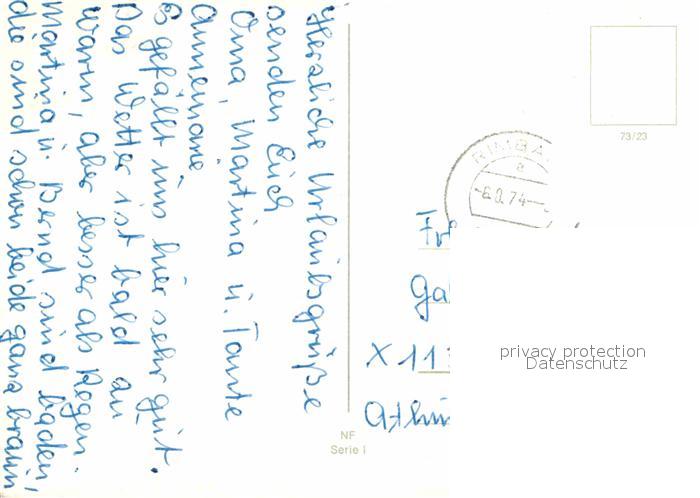 Herzliche Urlaubsgrüße
senden Euch
Oma, Martina u. Tante
Annemarie
Es gefällt uns hier sehr gut.
Das Wetter ist bald zu
warm, aber besser als Regen.
Martina u. Bernd sind baden,
die sind schon beide ganz braun,
73/23
RIMBA
a
74
Ga
X 11
NF
Serie I
privacy protection
Datenschutz